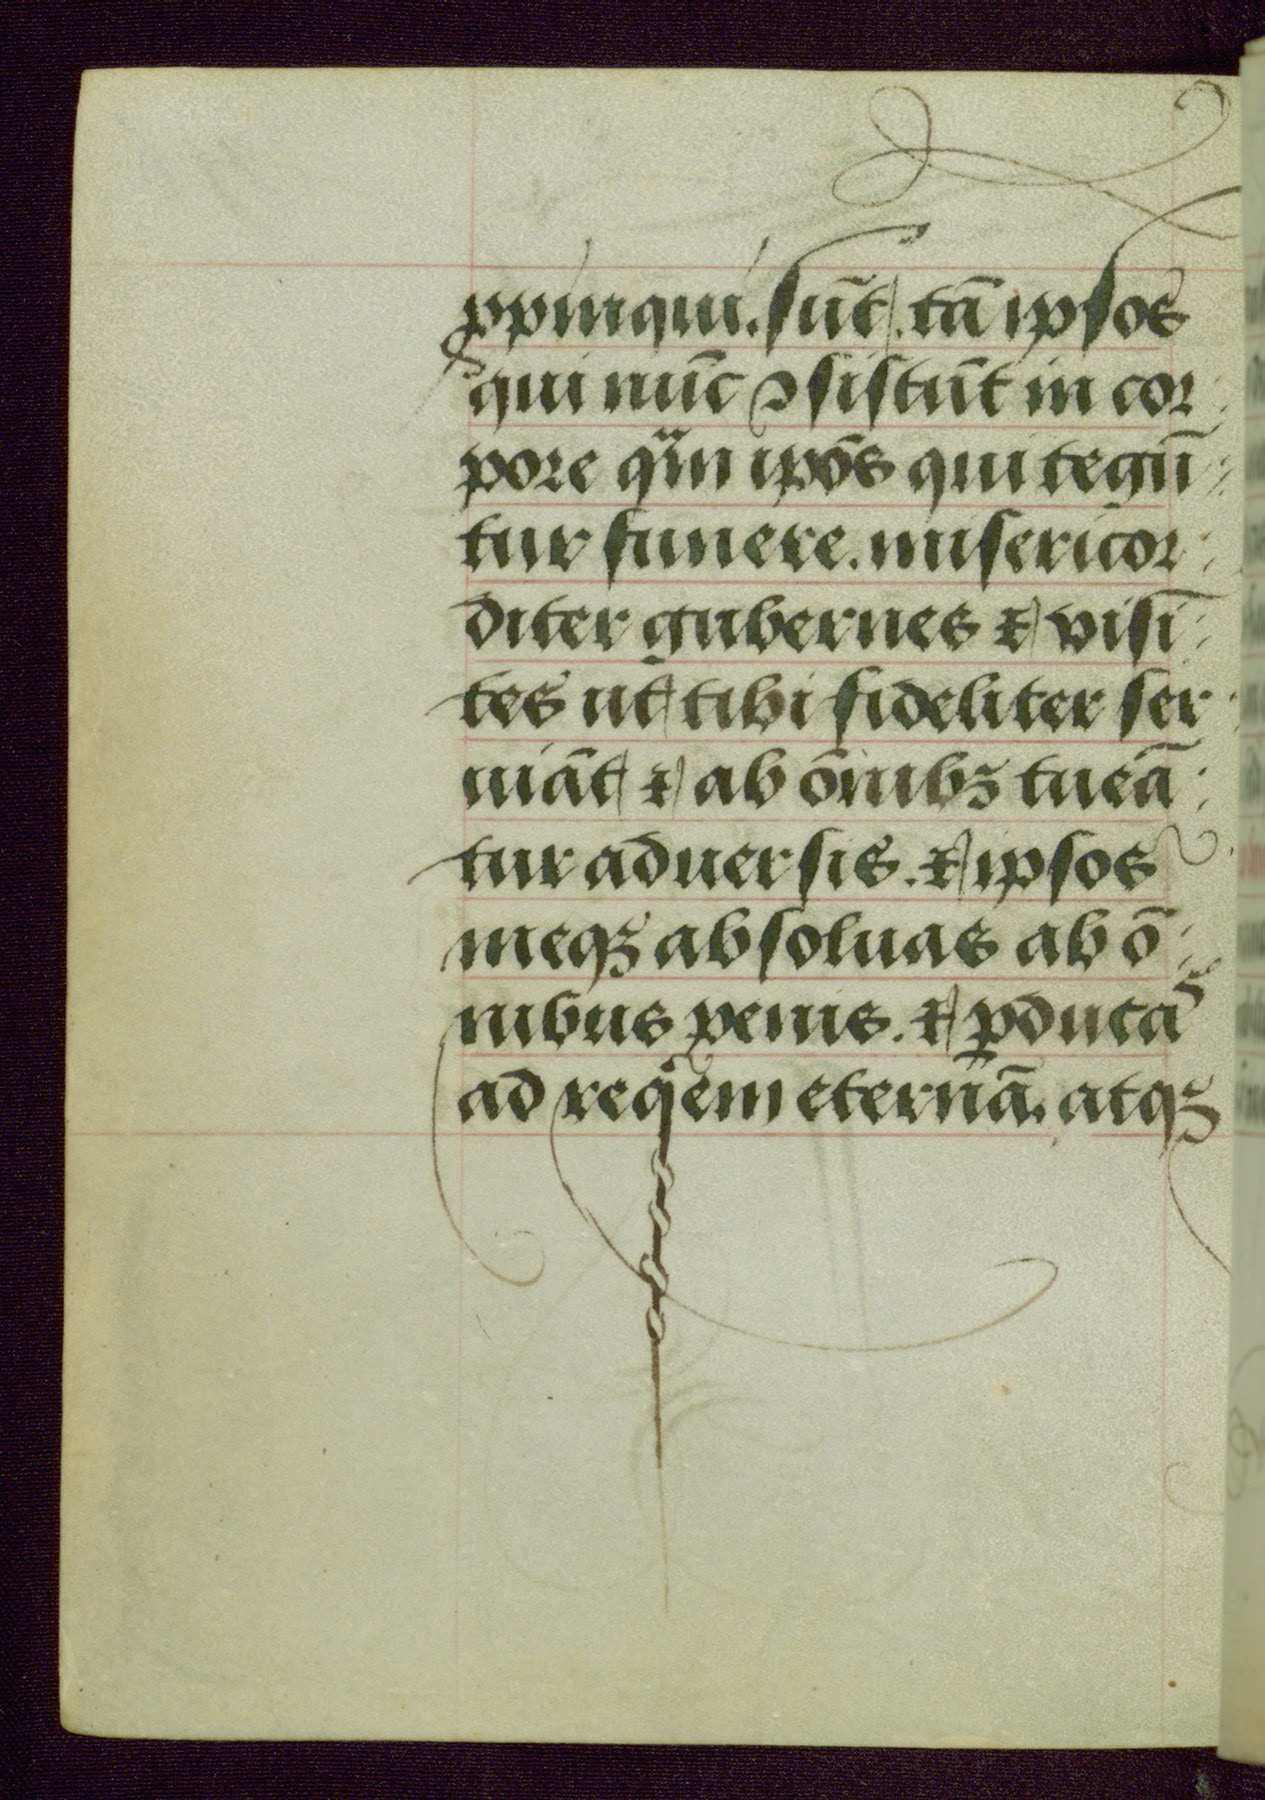 ꝓpinqui. sūt. tā ipsos
qui nūc ꝯsistūt in cor
pore qᷓm ip̄os qui tegū
tur funere. misericor
diter gubernes ⁊ visi
tes ut tibi fideliter ser
uiāt ⁊ ab ōnibꝫ tueā
tur aduersis. ⁊ ipsos
meqꝫ absoluas ab ō
nibus penis. ⁊ ꝑducas
ad reqͥem eternā. atqꝫ